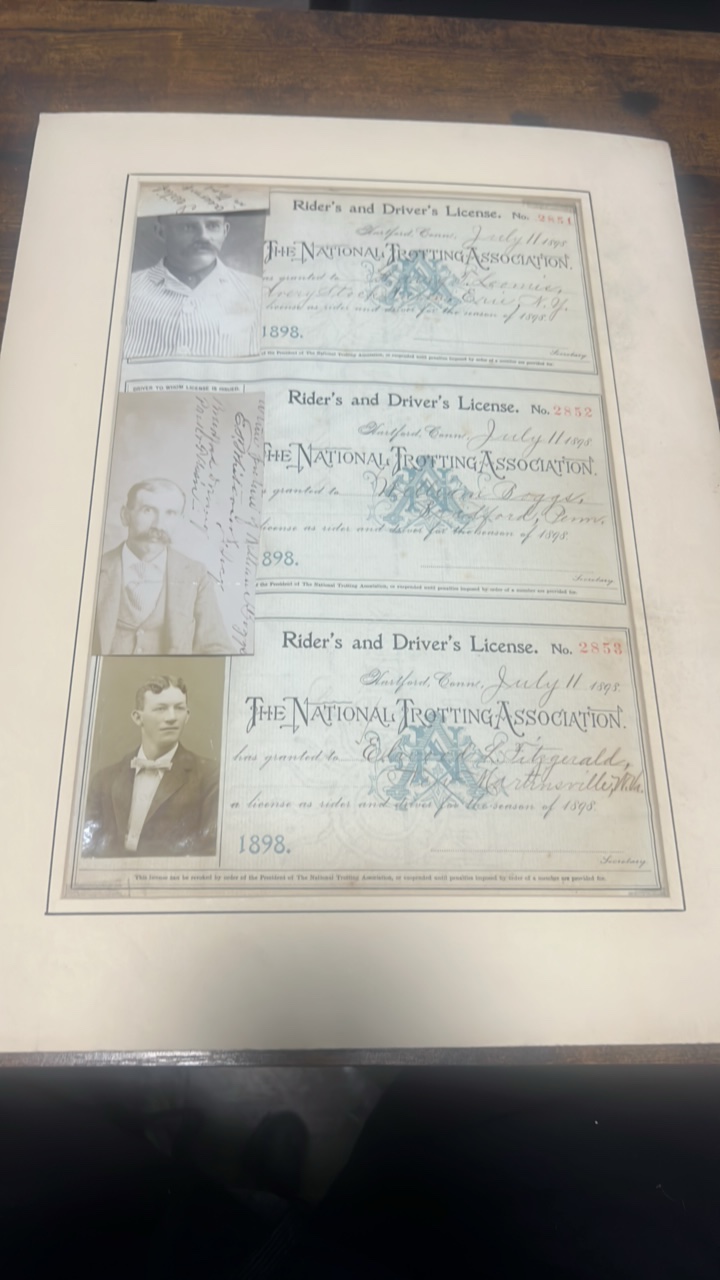 Rider's and Driver's License. No. 2851
Hartford, Conn. July 11 1898.
THE NATIONAL TROTTING ASSOCIATION.
as granted to Loomis,
Stock Erie, N.Y.
license as rider and driver for the season of 1898.
1898.
Secretary.
of the President of The National Trotting Association, or suspended until penalties imposed by order of a member are provided for.
DRIVER TO WHOM LICENSE IS ISSUED
Rider's and Driver's License. No. 2852
Hartford, Conn. July 11 1898.
THE NATIONAL TROTTING ASSOCIATION.
granted to William Boggs,
Penn.
license as rider and driver for the season of 1898.
898.
Secretary.
the President of The National Trotting Association, or suspended until penalties imposed by order of a member are provided for.
William Boggs
Rider's and Driver's License. No. 2853
Hartford, Conn. July 11 1898.
THE NATIONAL TROTTING ASSOCIATION.
has granted to L. Fitzgerald,
Martinsville,
a license as rider and driver for the season of 1898.
1898.
Secretary.
This license can be revoked by order of the President of The National Trotting Association, or suspended until penalties imposed by order of a member are provided for.